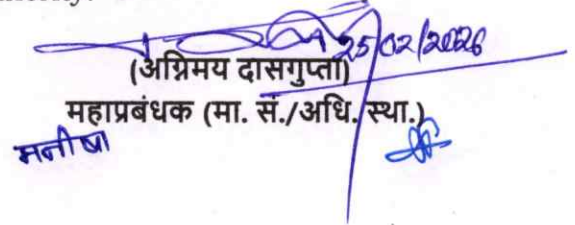 25/02/2026
(अग्निमय दासगुप्ता)
महाप्रबंधक (मा. सं./अधि. स्था.)
मनीषा